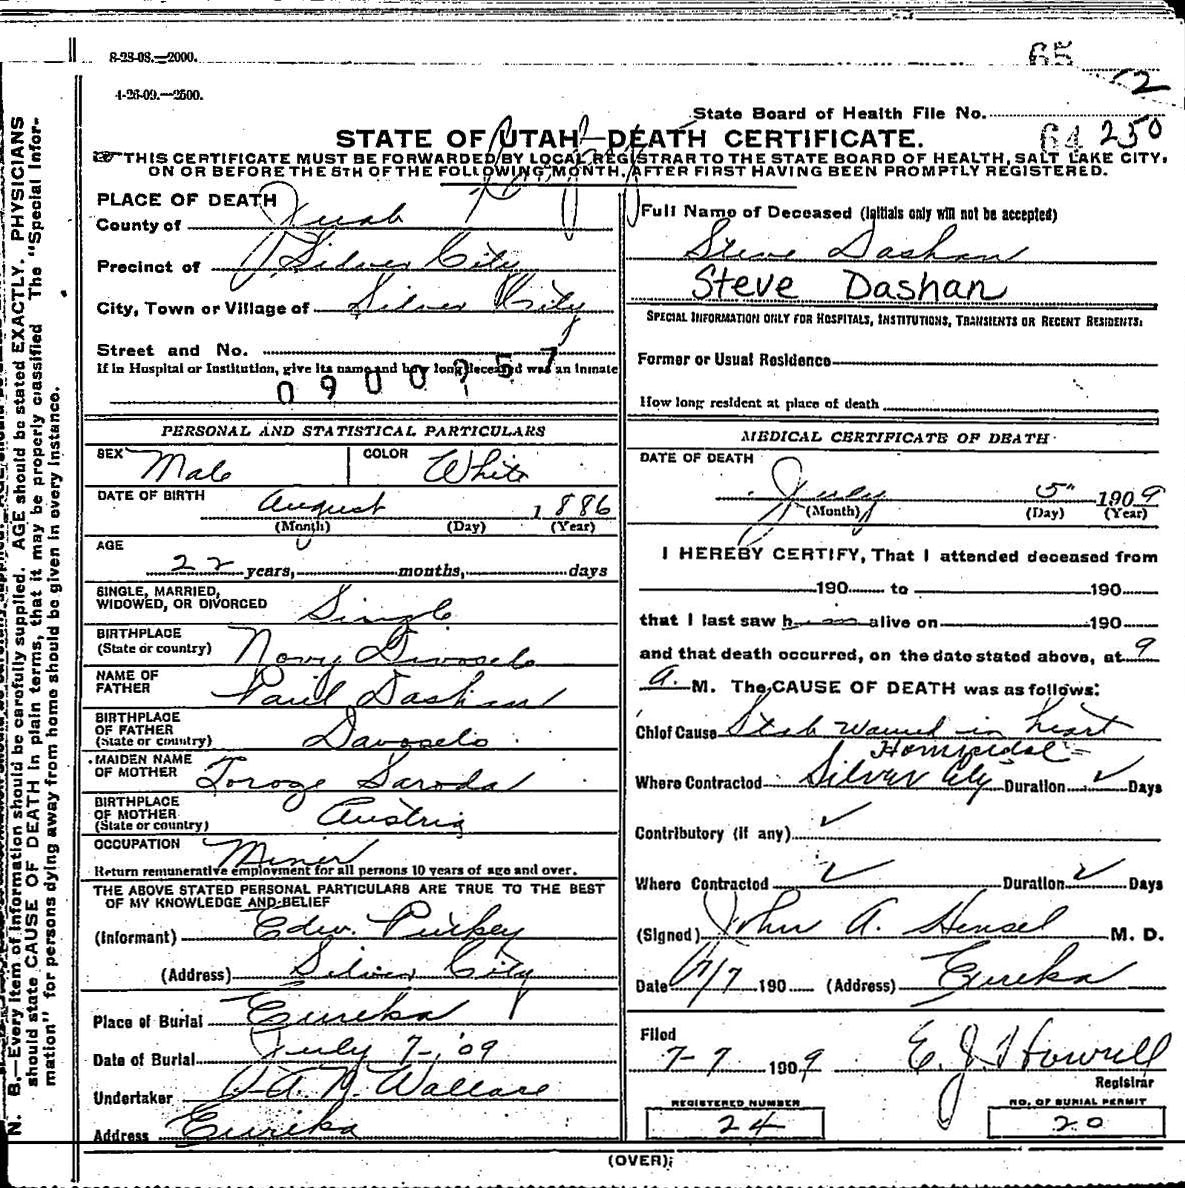 8-28-08.—2000.
65
4-26-09.—2500.
2
State Board of Health File No.
64 250
STATE OF UTAH—DEATH CERTIFICATE.
THIS CERTIFICATE MUST BE FORWARDED BY LOCAL REGISTRAR TO THE STATE BOARD OF HEALTH, SALT LAKE CITY,
ON OR BEFORE THE 5TH OF THE FOLLOWING MONTH, AFTER FIRST HAVING BEEN PROMPTLY REGISTERED.
N. B.—Every item of information should be carefully supplied. AGE should be stated EXACTLY. PHYSICIANS
should state CAUSE OF DEATH in plain terms, that it may be properly classified The "Special Infor-
mation" for persons dying away from home should be given in every instance.
PLACE OF DEATH
County of Juab
Precinct of Silver City
City, Town or Village of Silver City
Street and No.
If in Hospital or Institution, give its name and how long deceased was an inmate
PERSONAL AND STATISTICAL PARTICULARS
SEX Male COLOR White
DATE OF BIRTH August 1886
(Month) (Day) (Year)
AGE
22 years, months, days
SINGLE, MARRIED,
WIDOWED, OR DIVORCED Single
BIRTHPLACE
(State or country) Novy Davoselo
NAME OF
FATHER Paul Dashan
BIRTHPLACE
OF FATHER
(State or country) Davoselo
MAIDEN NAME
OF MOTHER Saroda
BIRTHPLACE
OF MOTHER
(State or country) Austria
OCCUPATION Miner
Return remunerative employment for all persons 10 years of age and over.
THE ABOVE STATED PERSONAL PARTICULARS ARE TRUE TO THE BEST
OF MY KNOWLEDGE AND BELIEF
(Informant) Edw. Pukey
(Address) Silver City
Place of Burial Eureka
Date of Burial July 7-, '09
Undertaker A. N. Wallace
Address Eureka
Full Name of Deceased (Initials only will not be accepted)
Steve Dashan
Steve Dashan
SPECIAL INFORMATION ONLY FOR HOSPITALS, INSTITUTIONS, TRANSIENTS OR RECENT RESIDENTS:
Former or Usual Residence
How long resident at place of death
MEDICAL CERTIFICATE OF DEATH
DATE OF DEATH
July 5" 1909
(Month) (Day) (Year)
I HEREBY CERTIFY, That I attended deceased from
190 to 190
that I last saw h alive on 190
and that death occurred, on the date stated above, at 9
A. M. The CAUSE OF DEATH was as follows:
Chief Cause Stab Wound in heart
Homicidal
Where Contracted Silver City Duration Days
Contributory (if any)
Where Contracted Duration Days
(Signed) John A. Hensel M. D.
Date 7/7 190 (Address) Eureka
Filed
7-7 1909 E. J. Howell
Registrar
REGISTERED NUMBER
24
NO. OF BURIAL PERMIT
20
(OVER);